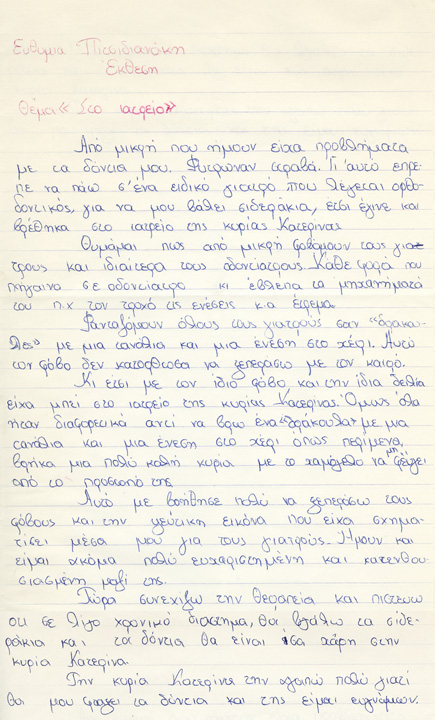 Ευθυμια Πισσιδιανάκη
Έκθεση
Θέμα «Στο ιατρείο»
Από μικρή που ήμουν είχα προβλήματα
με τα δόντια μου. Φύτρωναν στραβά. Γι' αυτό επρε-
πε να πάω σ' ένα ειδικό γιατρό που λέγεται ορθο-
δοντικός, για να μου βάλει σιδεράκια, έτσι έγινε και
βρέθηκα στο ιατρείο της κυρίας Κατερίνας
Θυμάμαι πως από μικρή φοβόμουν τους για-
τρους και ιδιαίτερα τους οδοντίατρους. Κάθε φορά που
πήγαινα σε οδοντίατρο κι έβλεπα τα μηχανήματά
του π.χ τον τροχό τις ενέσεις κ.α έτρεμα.
Φανταζόμουν όλους τους γιατρούς σαν "δρακου-
λες" με μια τανάλια και μια ένεση στο χέρι. Αυτό
τον φόβο δεν κατόρθωσα να ξεπεράσω με τον καιρό.
Κι ετσι με τον ίδιο φόβο, και την ίδια δειλία
είχα μπεί στο ιατρείο της κυρίας Κατερίνας. Όμως όλα
ήταν διαφορετικά αντί να βρω ένα «δράκουλα» με μια
τανάλια και μια ένεση στο χέρι όπως περίμενα,
βρήκα μια πολύ καλή κυρία με το χαμόγελο να μη φεύγει
από το πρόσωπό της
Αυτό με βοήθησε πολύ να ξεπεράσω τους
φόβους και την ψεύτικη εικόνα που είχα σχημα-
τίσει μέσα μου για τους γιατρούς. Ήμουν και
είμαι ακόμα πολύ ευχαριστημένη και κατενθου-
σιασμένη μαζί της.
Τώρα συνεχίζω την θεραπεία και πιστεύω
οτι σε λίγο χρονικό διάστημα, θα βγάλω τα σιδε-
ράκια και τα δόντια θα είναι ίσα χάρη στην
κυρία Κατερίνα.
Την κυρία Κατερίνα την αγαπώ πολύ γιατί
θα μου φτιάξει τα δόντια και της είμαι ευγνώμων.